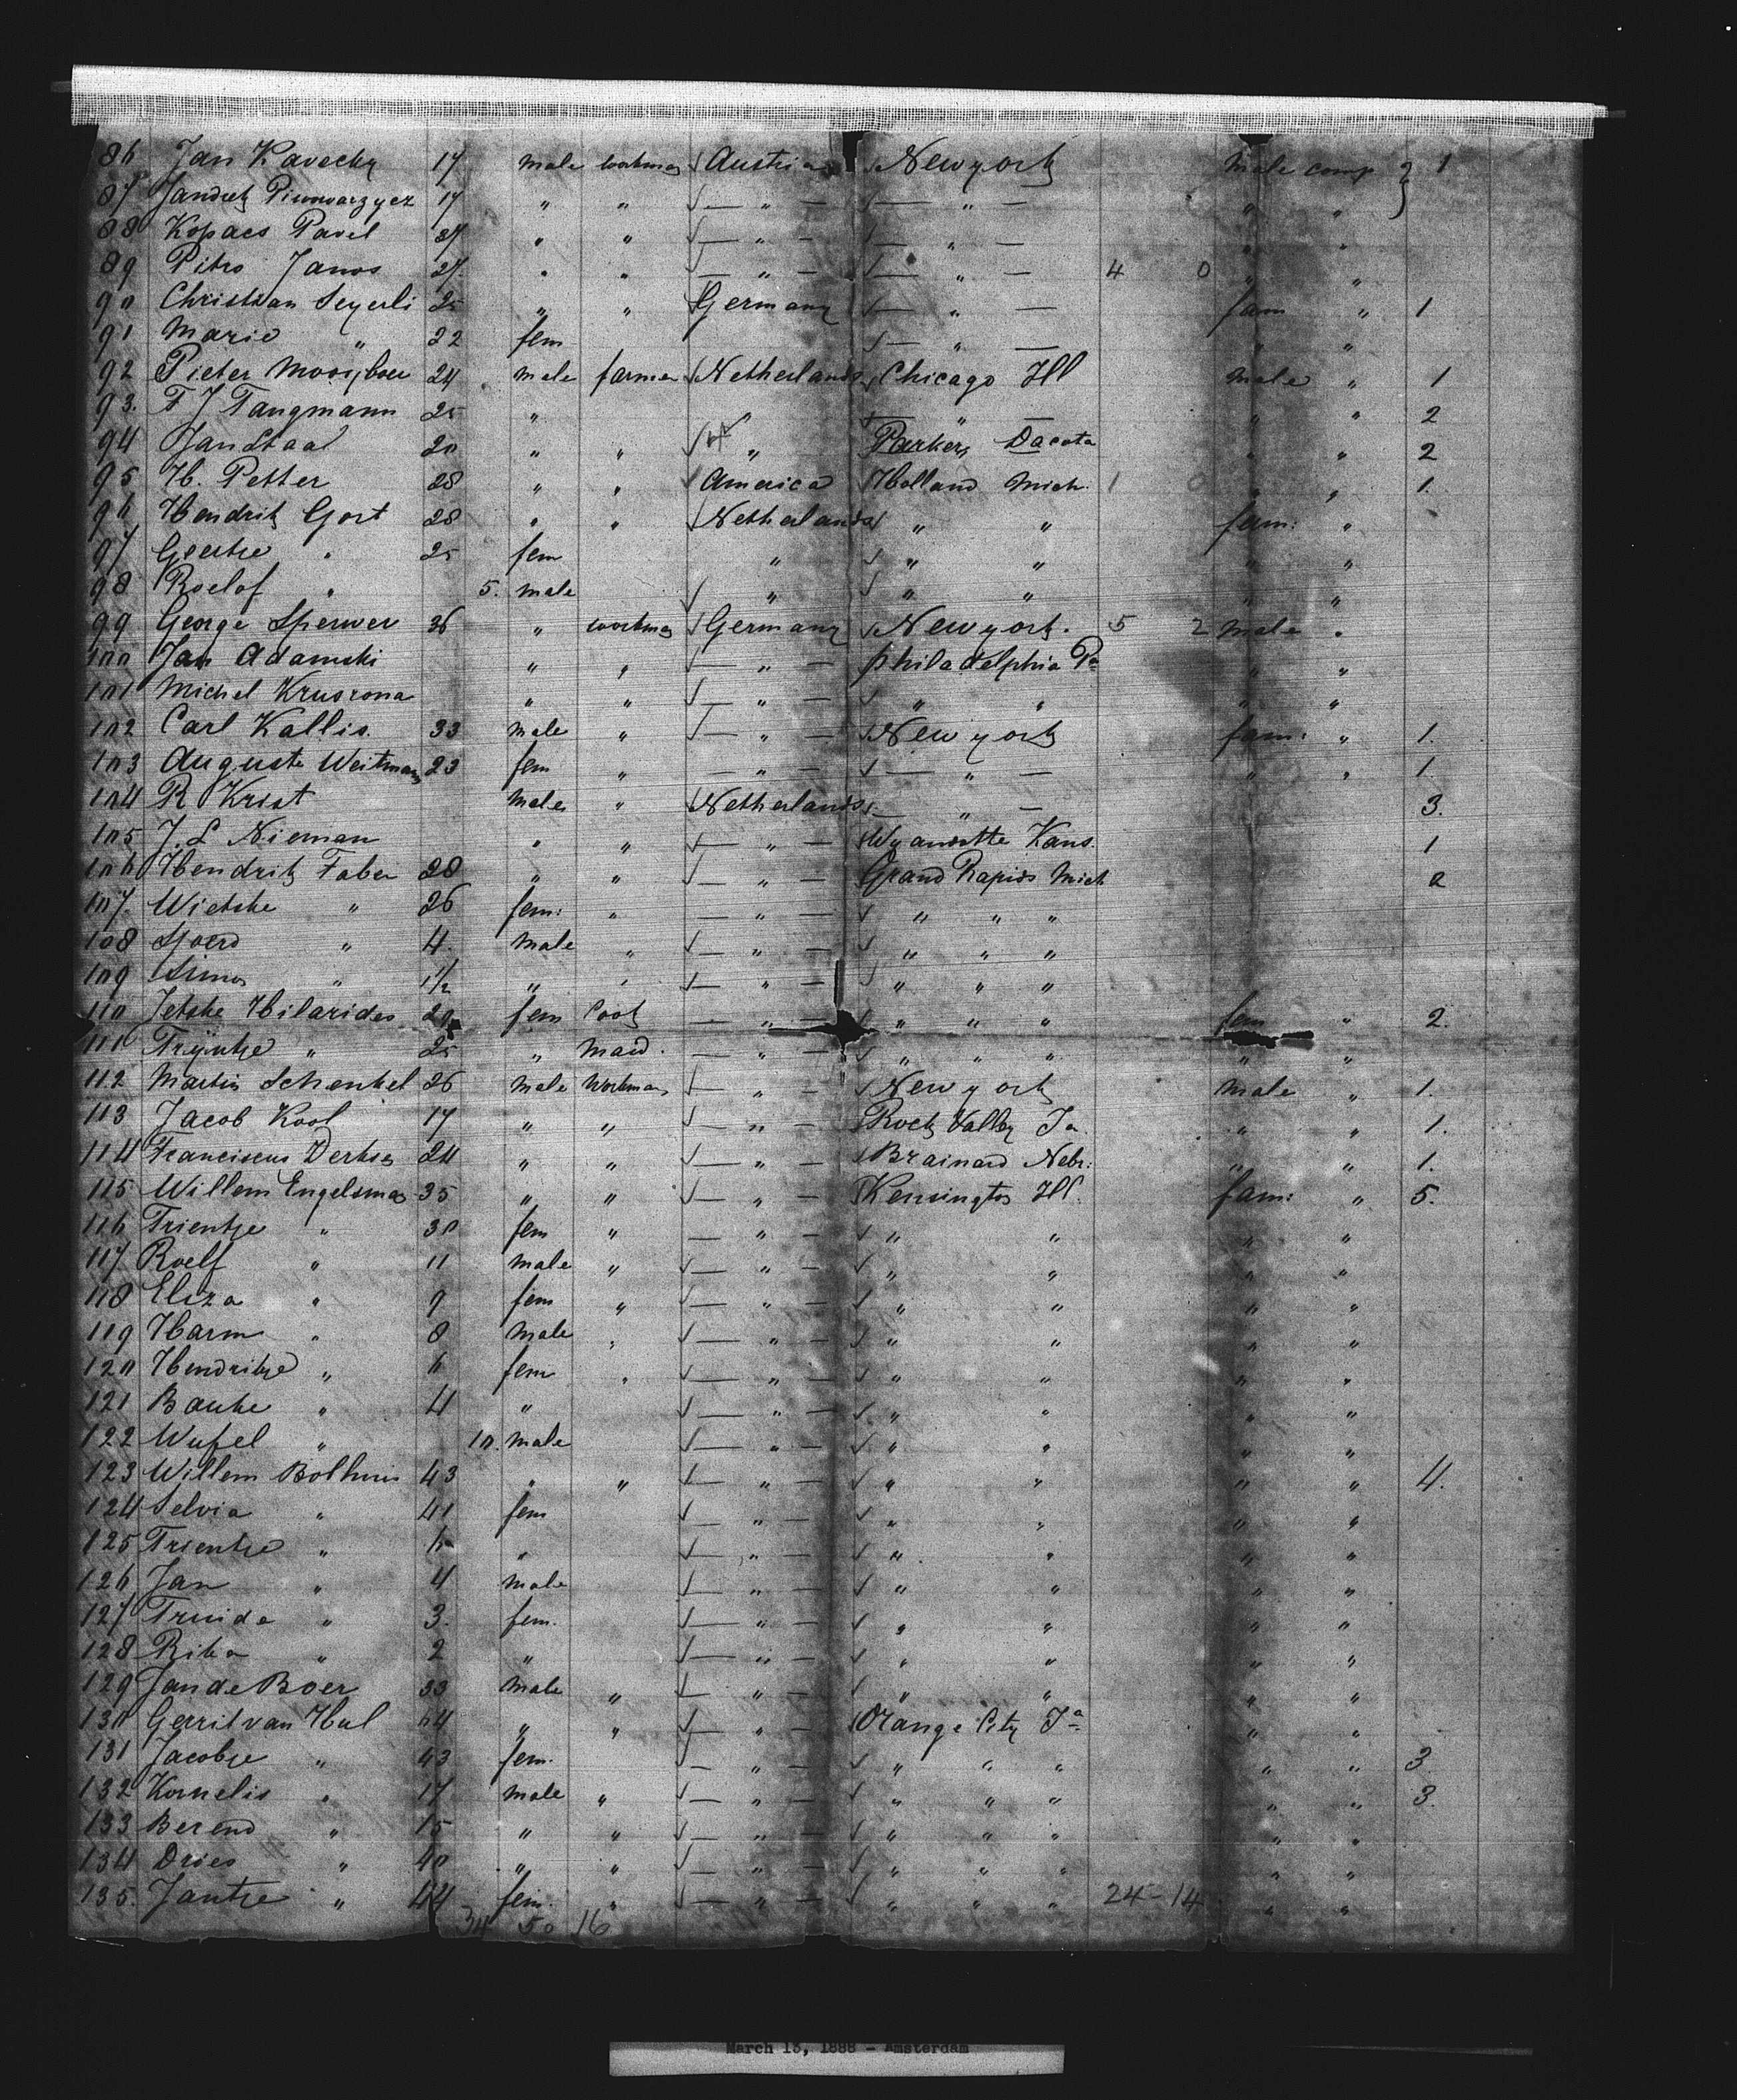 86 Jan Kavecky 17 male workman Austria Newyork male comp } 1
87 Jandrek Piwowarzycz 17 " " — " — — " — " "
88 Kopacs Pavel 37 " " — " — — " — " "
89 Pitro Janos 27. " " — " — — " — 4 0 " "
90 Christian Seyerli 25 " " Germany — " — fam " 1
91 Marie " 22 fem — " — " "
92 Pieter Mooijboer 24 male farmer Netherlands Chicago Ill male " 1
93. F J Tangmann 25 " — " — " " 2
94 Jan Staal 20 " " " Parker, Dacota " " 2
95 H. Petter 28 " " America Holland Mich. 1 0 " " 1.
96 Hendrik Gort 28 " " Netherlands " " fam: "
97 Geertje " 25 fem " " " " "
98 Roelof " 5. male " " " " "
99 George Sperwer 36 " workman Germany Newyork. 5 2 male "
100 Jan Adamski " " — " — philadelphia Pa " "
101 Michel Krusrona " " — " — " " " "
102 Carl Kallis. 33 male " — " — Newyork fam: " 1.
103 Auguste Weitman 23 fem " — " — — " — " " 1.
104 R Krist male " Netherlands — " — 3.
105 J. L Nieman " " — " — Wyandotte Kans. 1
106 Hendrik Faber 28 " " — " — Grand Rapids Mich 2
107. Wietske " 26 fem: " — " — " " "
108 Sjoerd " 4. male " — " — " " "
109 Simon " 1 1/2 " " — " — " " "
110 Jetske Hilarides 20 fem Cook — " — " " " fem " 2.
111 Trijntje " 25 " Maid. — " — " " " " "
112 Martin Schenkel 26 male Workman — " — Newyork male " 1.
113 Jacob Kool 17 " " — " — Rock Valley Ia. " " 1.
114 Franciscus Derksen 24 " " — " — Brainard Nebr: " " 1.
115 Willem Engelsman 35 " " — " — Kensington Ill. fam: " 5.
116 Trientje " 30 fem " — " — " " " "
117 Roelf " 11 male " — " — " " " "
118 Eliza " 9 fem " — " — " " " "
119 Harm " 8 male " — " — " " " "
120 Hendrikje " 6 fem " — " — " " " "
121 Bauke " 4 " — " — " " " "
122 " 10. male — " — " " " "
123 Willem Bolhuis 43 " " — " — " " " " 4.
124 Selvia " 41 fem — " — " " " "
125 Trientje " 6 " — " — " " " "
126 Jan " 4 male — " — " " " "
127 Truida " 3. fem. — " — " " " "
128 Rika " 2 " — " — " " " "
129 Jan de Boer 33 male " — " — " " " "
130 Gerrit van Hul 64 " " — " — Orange City Ia " "
131 Jacobje " 43 fem. — " — " " " " " 3.
132 Kornelis " 17 male " — " — " " " " " 3.
133 Berend " 15 " " — " — " " " " "
134 Dries " 40 " " — " — " " " " "
135. Jantje " 44 fem. " — " — " " " 24 - 14 " "
34 50 16
March 13, 1888 - Amsterdam